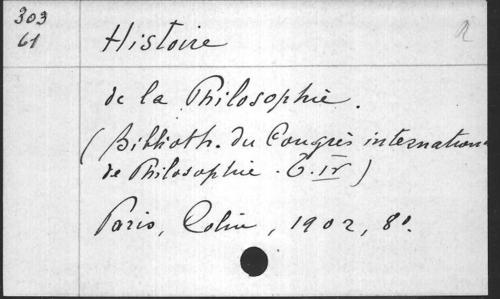 303
61
Histoire
de la Philosophie.
(Biblioth. du Congrès internation
de Philosophie. T. IV)
Paris, Colin, 1902, 8°.